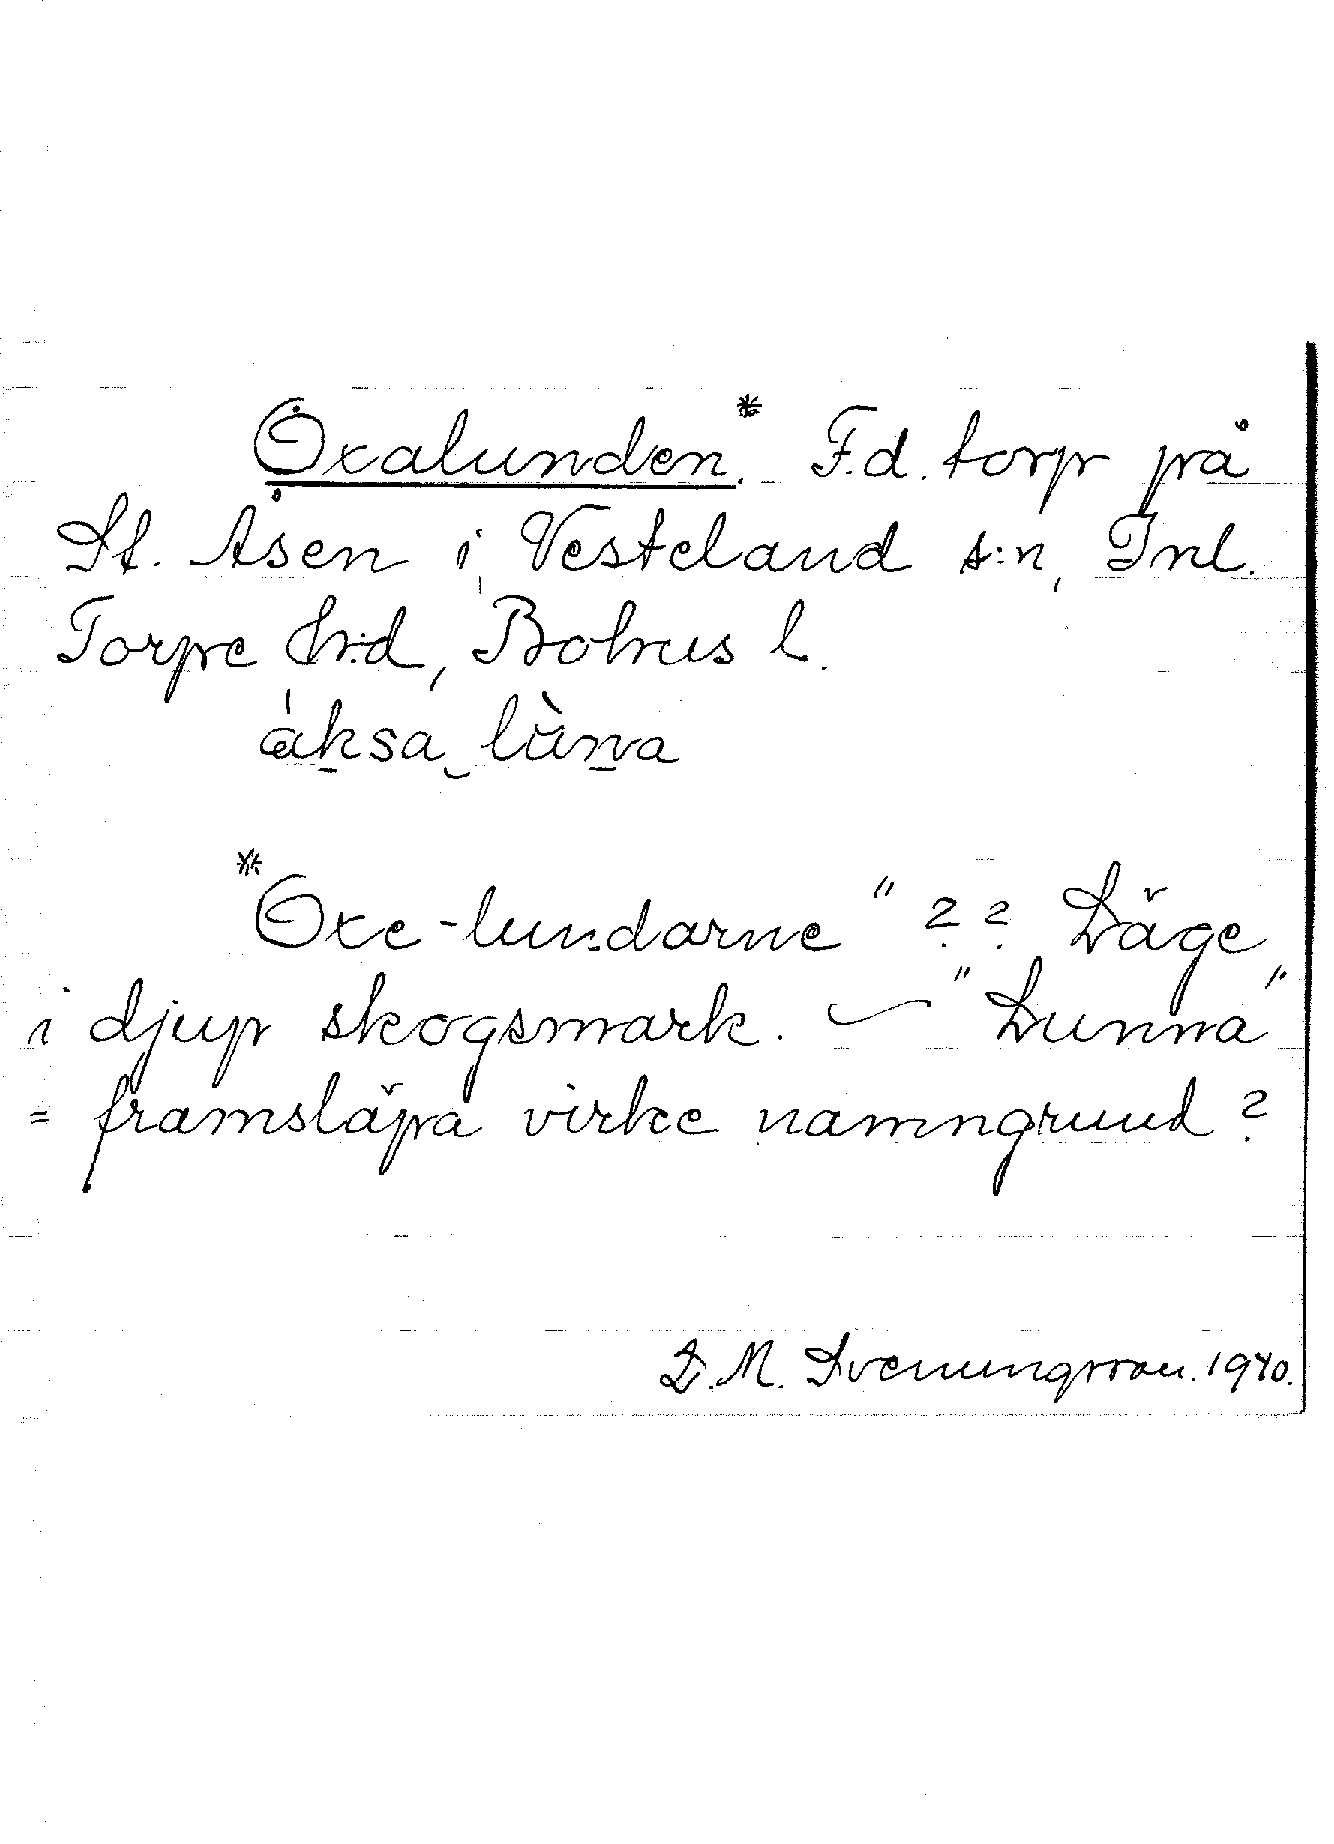 Oxalunden.* F.d. torp på
St. Åsen i Vesteland s:n, Inl.
Torpe h:d, Bohus l.
åksa lùna
*Oxe-lundarne" ?? Läge
i djup skogsmark. — "Lunna"
= framsläpa virke namngrund?
D. M. Svenningsson. 1940.